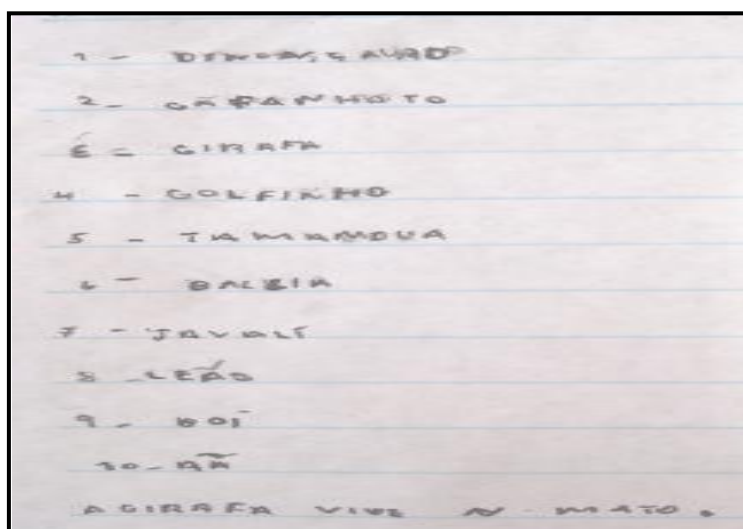 1 - DINOASSAURO
2 - GAFANHOTO
É - GIRAFA
4 - GOLFINHO
5 - TAMANDUÁ
6 - BALEIA
7 - JAVALÍ
8 - LEÃO
9 - BOI
10 - RÃ
A GIRAFA VIVE N MATO.